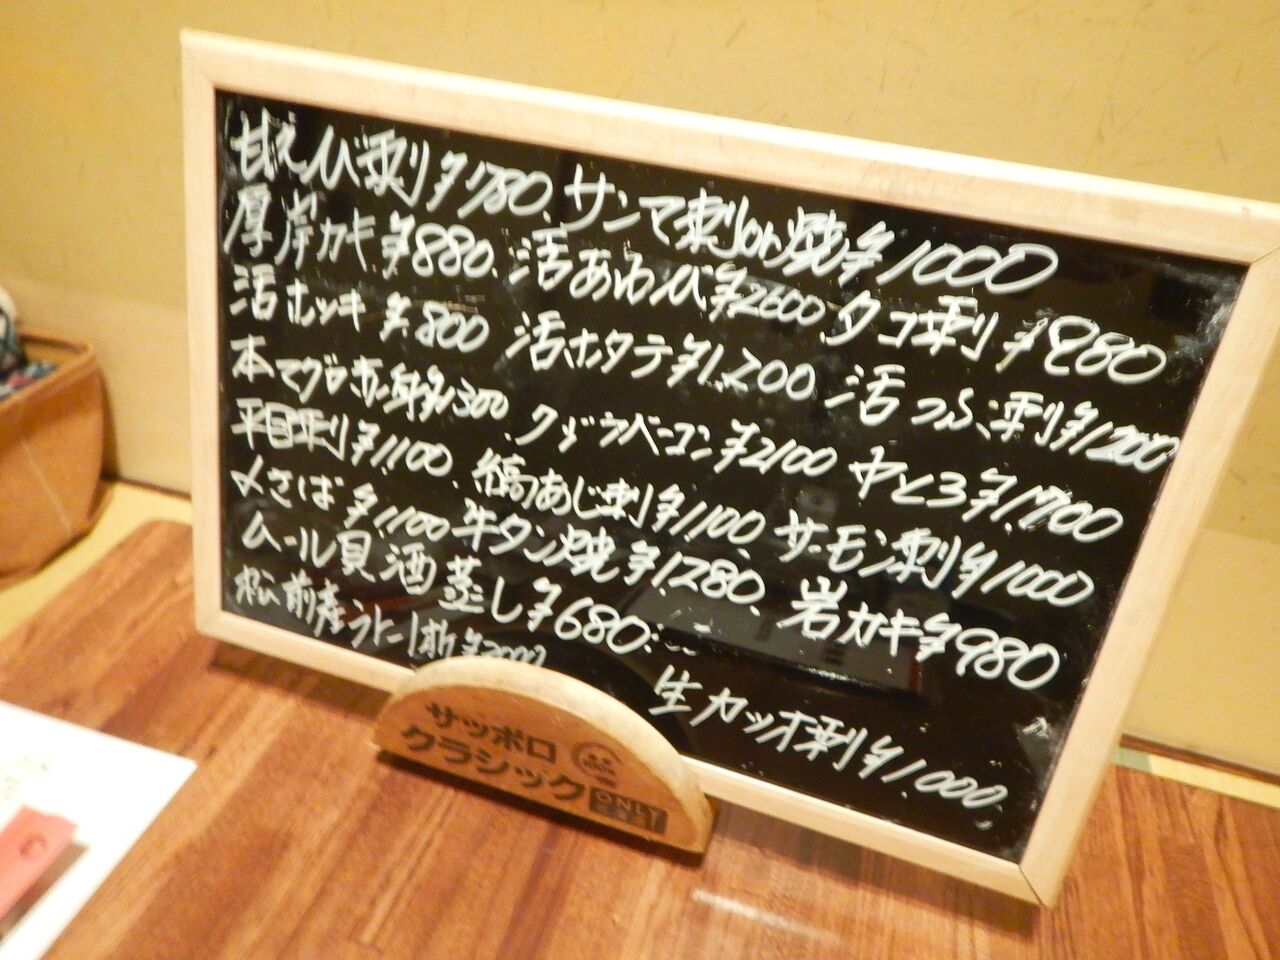 甘えび刺¥780、サンマ刺or焼¥1000
厚岸カキ¥880、活あわび¥2600、タコ刺¥980
活ホッキ¥800 活ホタテ¥1,200 活つぶ刺¥1200
本マグロ赤身¥1300、クジラベーコン¥2100 中とろ¥1,700
平目刺¥1,100、縞あじ刺¥1,100、サーモン刺¥1000
〆さば¥1,100 牛タン焼¥1,280、岩カキ¥980
ムール貝酒蒸し¥680
松前産 ¥2000
生カツオ刺¥1,000、
サッポロ
クラシック
ONLY